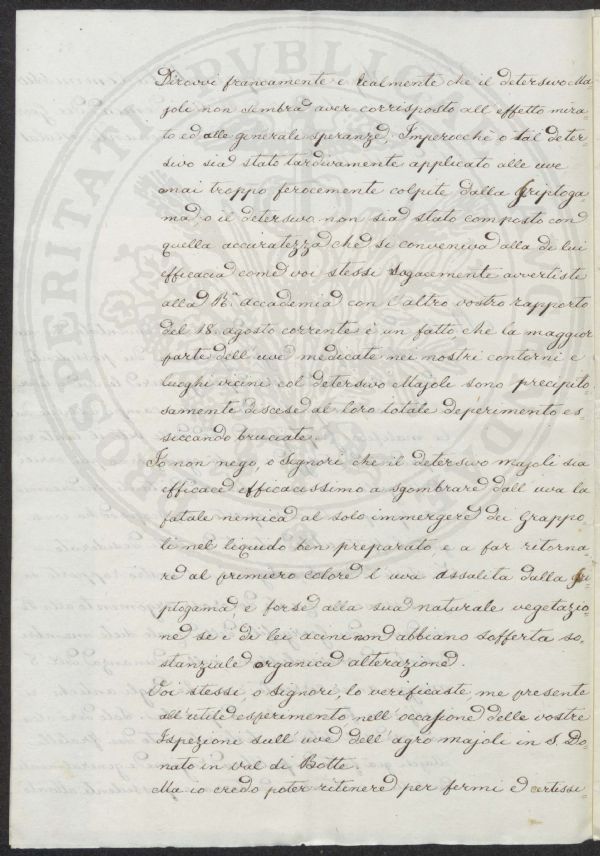 Dirovvi francamente e lealmente che il detersivo Ma-
joli non sembra aver corrisposto all'effetto mira-
to ed alle generali speranze. Imperocchè o tal deter
sivo sia stato tardivamente applicato alle uve
omai troppo ferocemente colpite dalla Griptoga-
ma, o il detersivo non sia stato composto con
quella accuratezza che si conveniva alla di lui
efficacia come voi stessi sagacemente avvertiste
alla R.a accademia con l'altro vostro rapporto
del 18. agosto corrente è un fatto, che la maggior
parte dell'uve medicate nei nostri contorni e
luoghi vicini col detersivo Majoli sono precipito-
samente discese al loro totale deperimento es-
siccando bruciate.
Io non nego, o Signori che il detersivo majoli sia
efficace efficacissimo a sgombrare dall'uva la
fatale nemica al solo immergere dei Grappo-
li nel liquido ben preparato e a far ritorna-
re al primiero colore l'uva assalita dalla Gri-
ptogama e forse alla sua naturale vegetazio-
ne se i di lei acini non abbiano sofferta so-
stanziale organica alterazione.
Voi stessi, o Signori, lo verificaste, me presente
all'utile esperimento nell'occasione delle vostre
Ispezioni sull'uve dell'agro majoli in S. Do-
nato in val di Botte.
Ma io credo poter ritenere per fermi e certissi-
PVBLIC
PROSPERITATI